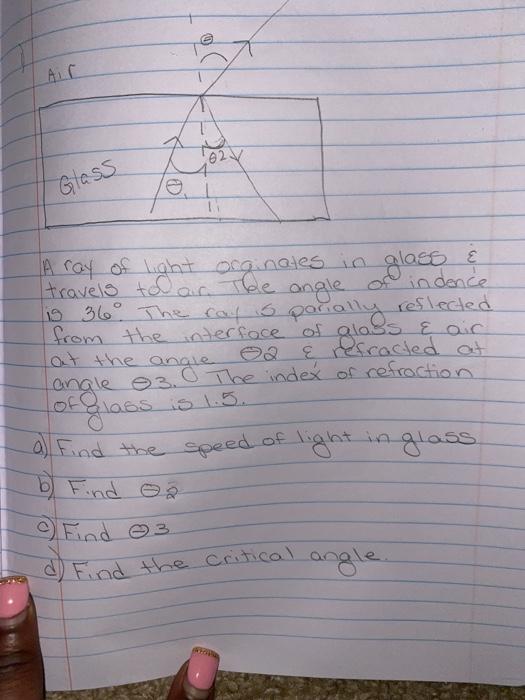 1)
θ
Air
Glass
θ2
θ1
A ray of light orginates in glass &
travels to air. The angle of indence
is 36°. The ray is parially reflected
from the interface of glass & air
at the angle θ2 & refracted at
angle θ3. The index of refraction
of glass is 1.5.
a) Find the speed of light in glass
b) Find θ2
c) Find θ3
d) Find the critical angle.